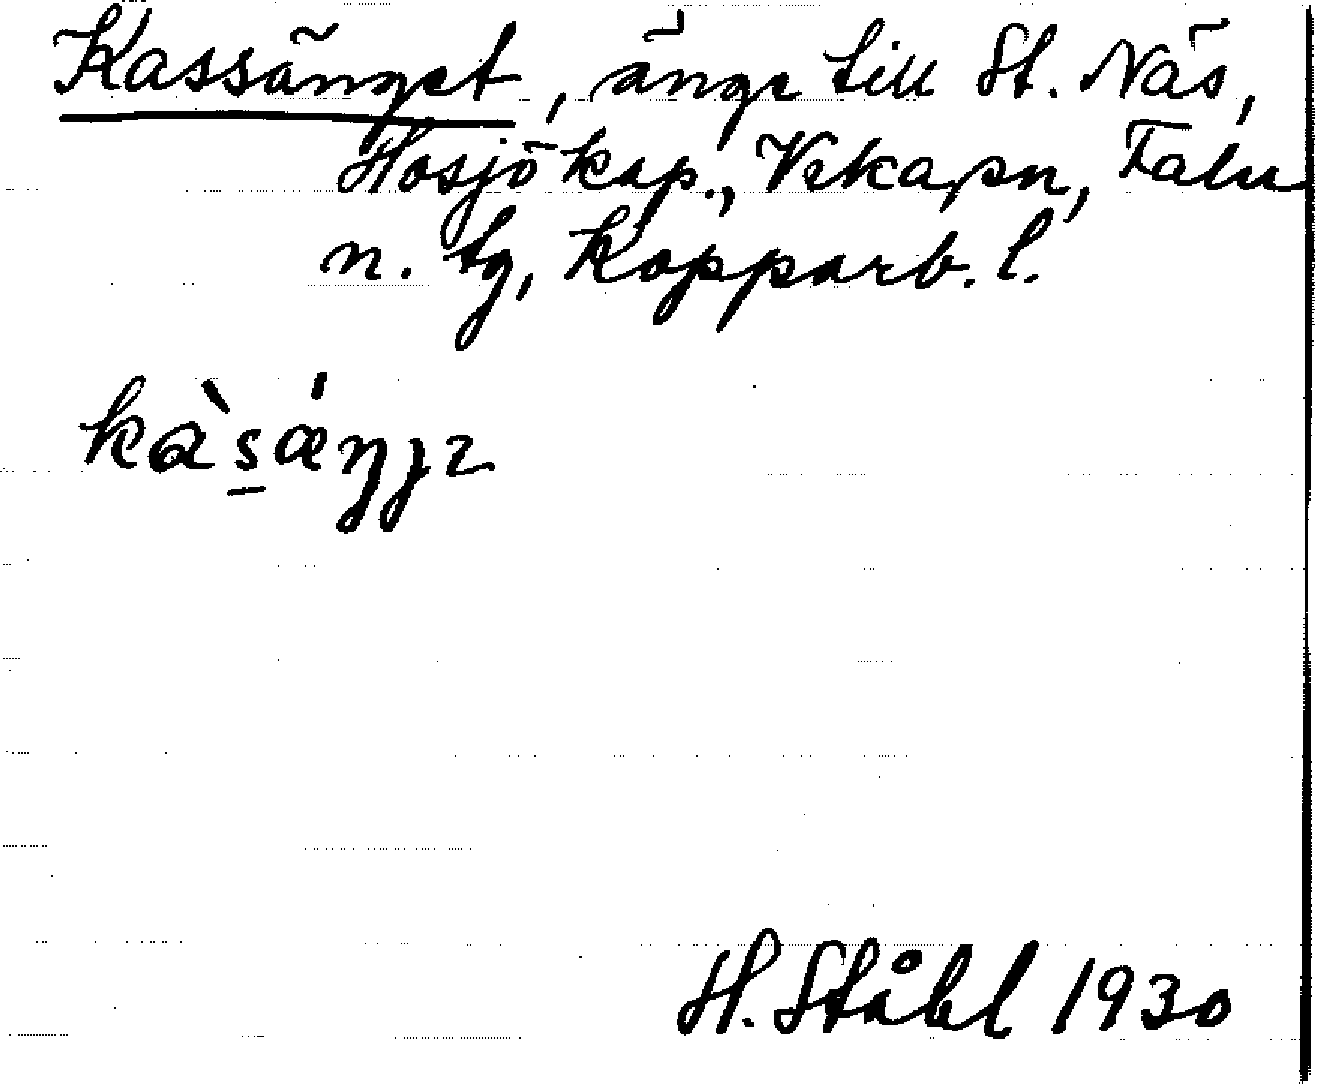 Kassänget, änge till St. Näs,
Hosjö kap., Vikapn, Falu
n. tg, Kopparb. l.
kàs̠ǽŋɟ₂
H. Ståhl 1930